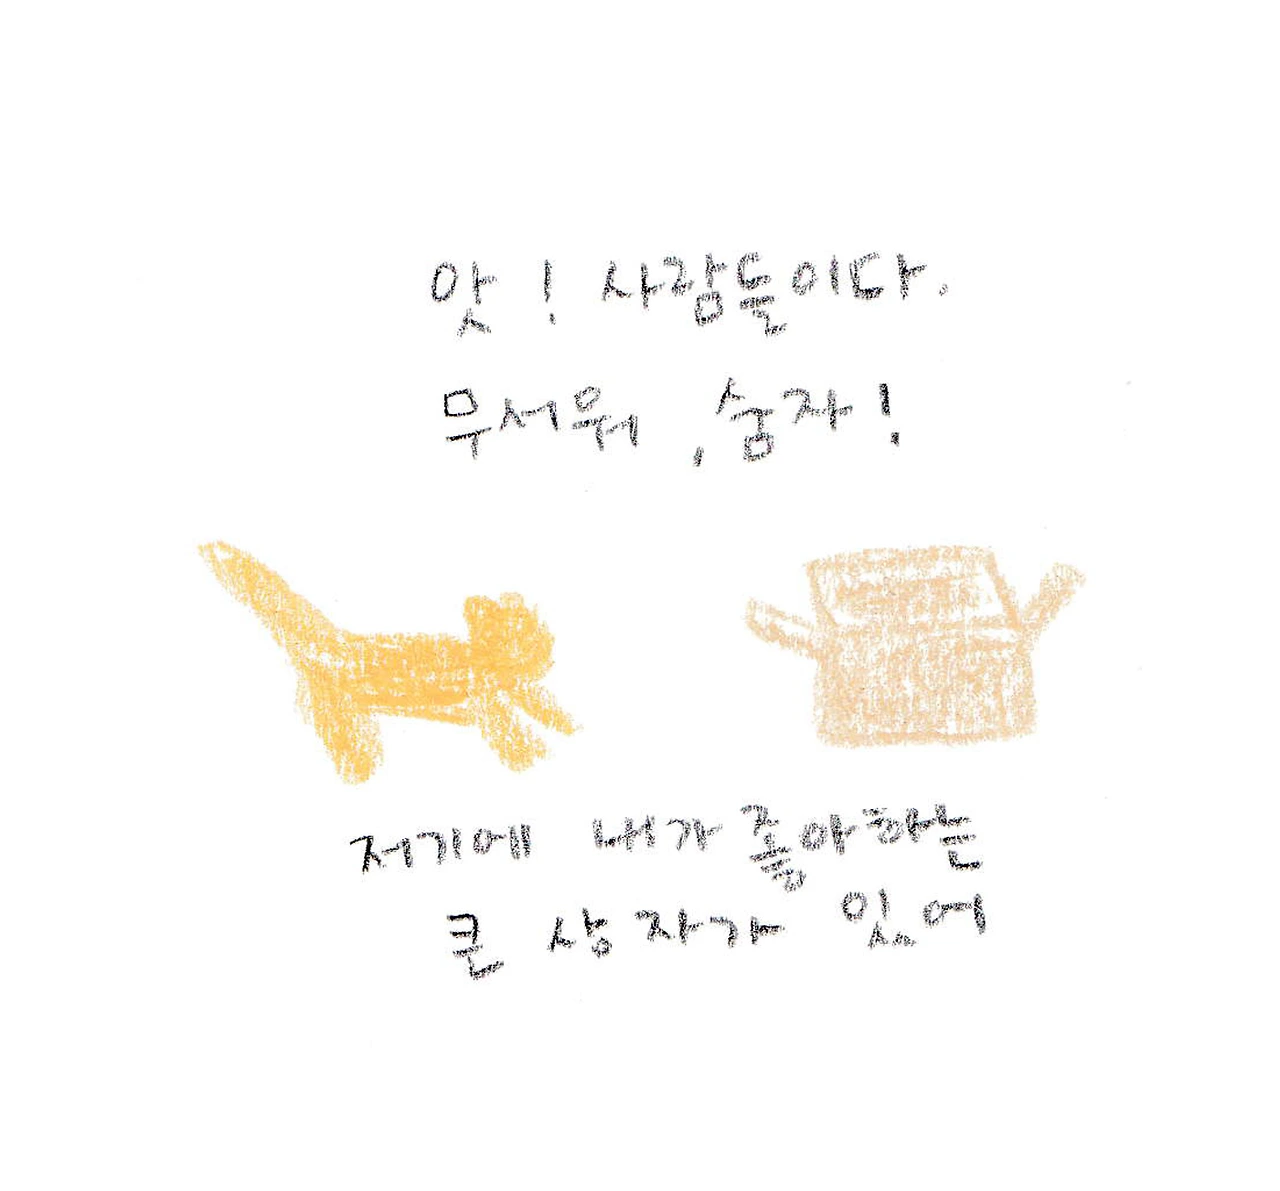 앗! 사람들이다.
무서워, 숨자!
저기에 내가 좋아하는
큰 상자가 있어